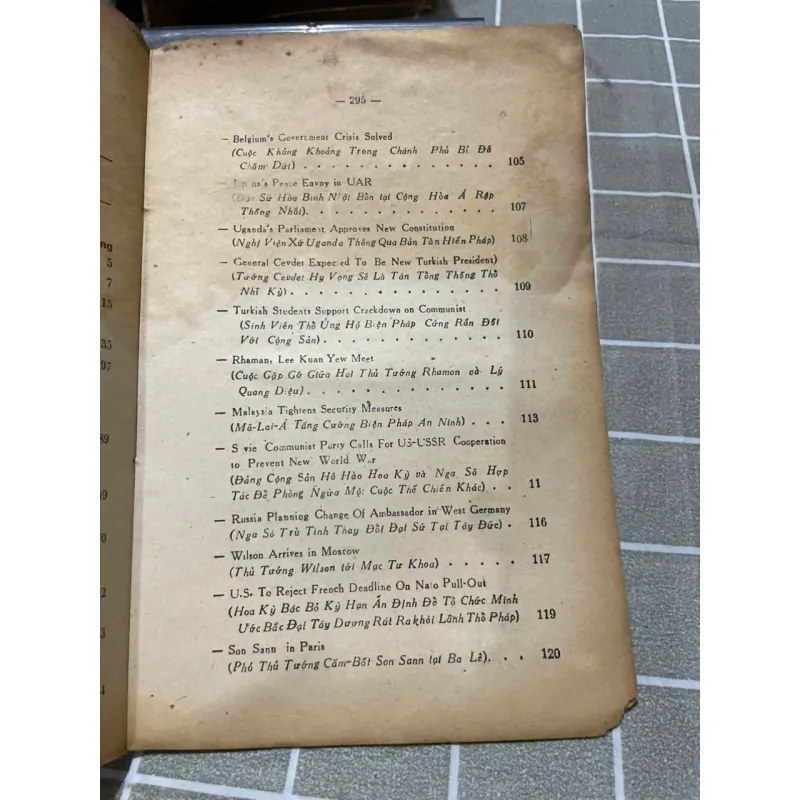 — 295 —
— Belgium's Government Crisis Solved
(Cuộc Khủng Khoảng Trong Chánh Phủ Bỉ Đã
Chấm Dứt) . . . . . . . . . . . . . . 105
Peace Envoy in UAR
Sứ Hòa Bình Nhật Bổn tại Cộng Hòa Á Rập
Thống Nhất). . . . . . . . . . . . . 107
— Uganda's Parliament Approves New Constitution
(Nghị Viện Xứ Uganda Thông Qua Bản Tân Hiến Pháp) 108
— General Cevdet Expected To Be New Turkish President)
(Tướng Cevdet Hy Vọng Sẽ Là Tân Tổng Thống Thổ
Nhĩ Kỳ) . . . . . . . . . . . . . . 109
— Turkish Students Support Crackdown on Communist
(Sinh Viên Thổ Ủng Hộ Biện Pháp Cứng Rắn Đối
Với Cộng Sản) . . . . . . . . . . . . 110
— Rhaman, Lee Kuan Yew Meet
(Cuộc Gặp Gỡ Giữa Hai Thủ Tướng Rhaman và Lý
Quang Diệu) . . . . . . . . . . . . . 111
— Malaysia Tightens Security Measures
(Mã-Lai-Á Tăng Cường Biện Pháp An Ninh) . . . 113
— S vie Communist Party Calls For US-USSR Cooperation
to Prevent New World War
(Đảng Cộng Sản Hô Hào Hoa Kỳ và Nga Sô Hợp
Tác Đề Phòng Ngừa Một Cuộc Thế Chiến Khác) . . 11
— Russia Planning Change Of Ambassador in West Germany
(Nga Sô Trù Tính Thay Đổi Đại Sứ Tại Tây Đức) . 116
— Wilson Arrives in Moscow
(Thủ Tướng Wilson tới Mạc Tư Khoa) . . . . . 117
— U.S. To Reject French Deadline On Nato Pull-Out
(Hoa Kỳ Bác Bỏ Kỳ Hạn Ấn Định Để Tổ Chức Minh
Ước Bắc Đại Tây Dương Rút Ra khỏi Lãnh Thổ Pháp) 119
— Son Sann in Paris
(Phó Thủ Tướng Căm-Bốt Son Sann tại Ba Lê). . . 120
ng
5
7
15
35
97
89
99
0
2
3
4